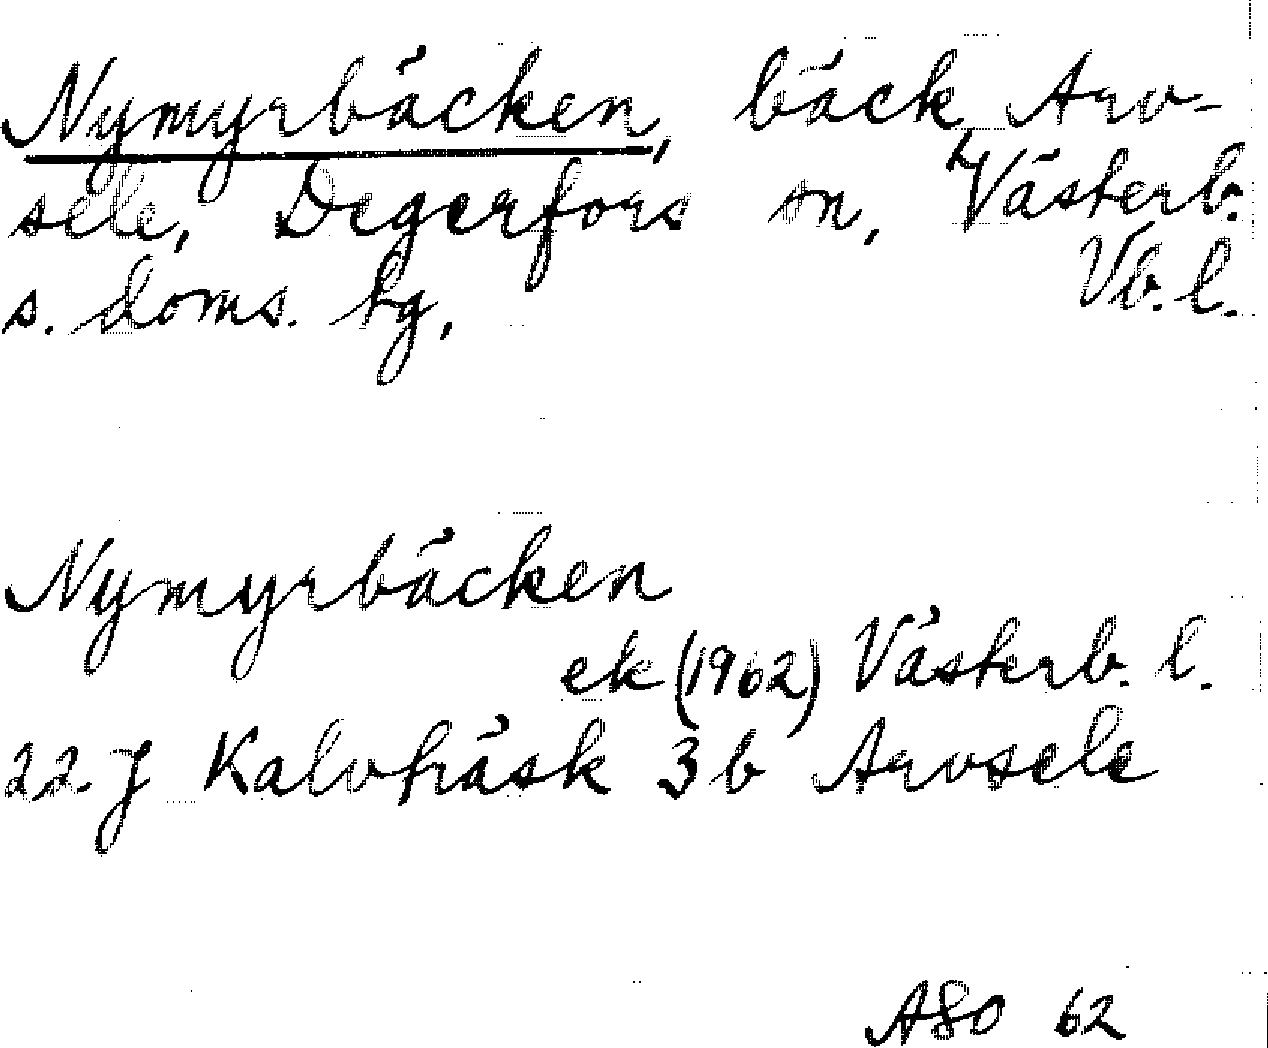 Nymyrbäcken, bäck, Arv-
sele, Degerfors sn, Västerb.
s. doms. hg, Vb. l.
Nymyrbäcken
ek (1962) Västerb. l.
22. J Kalvträsk 3 b Arvsele
ASO 62